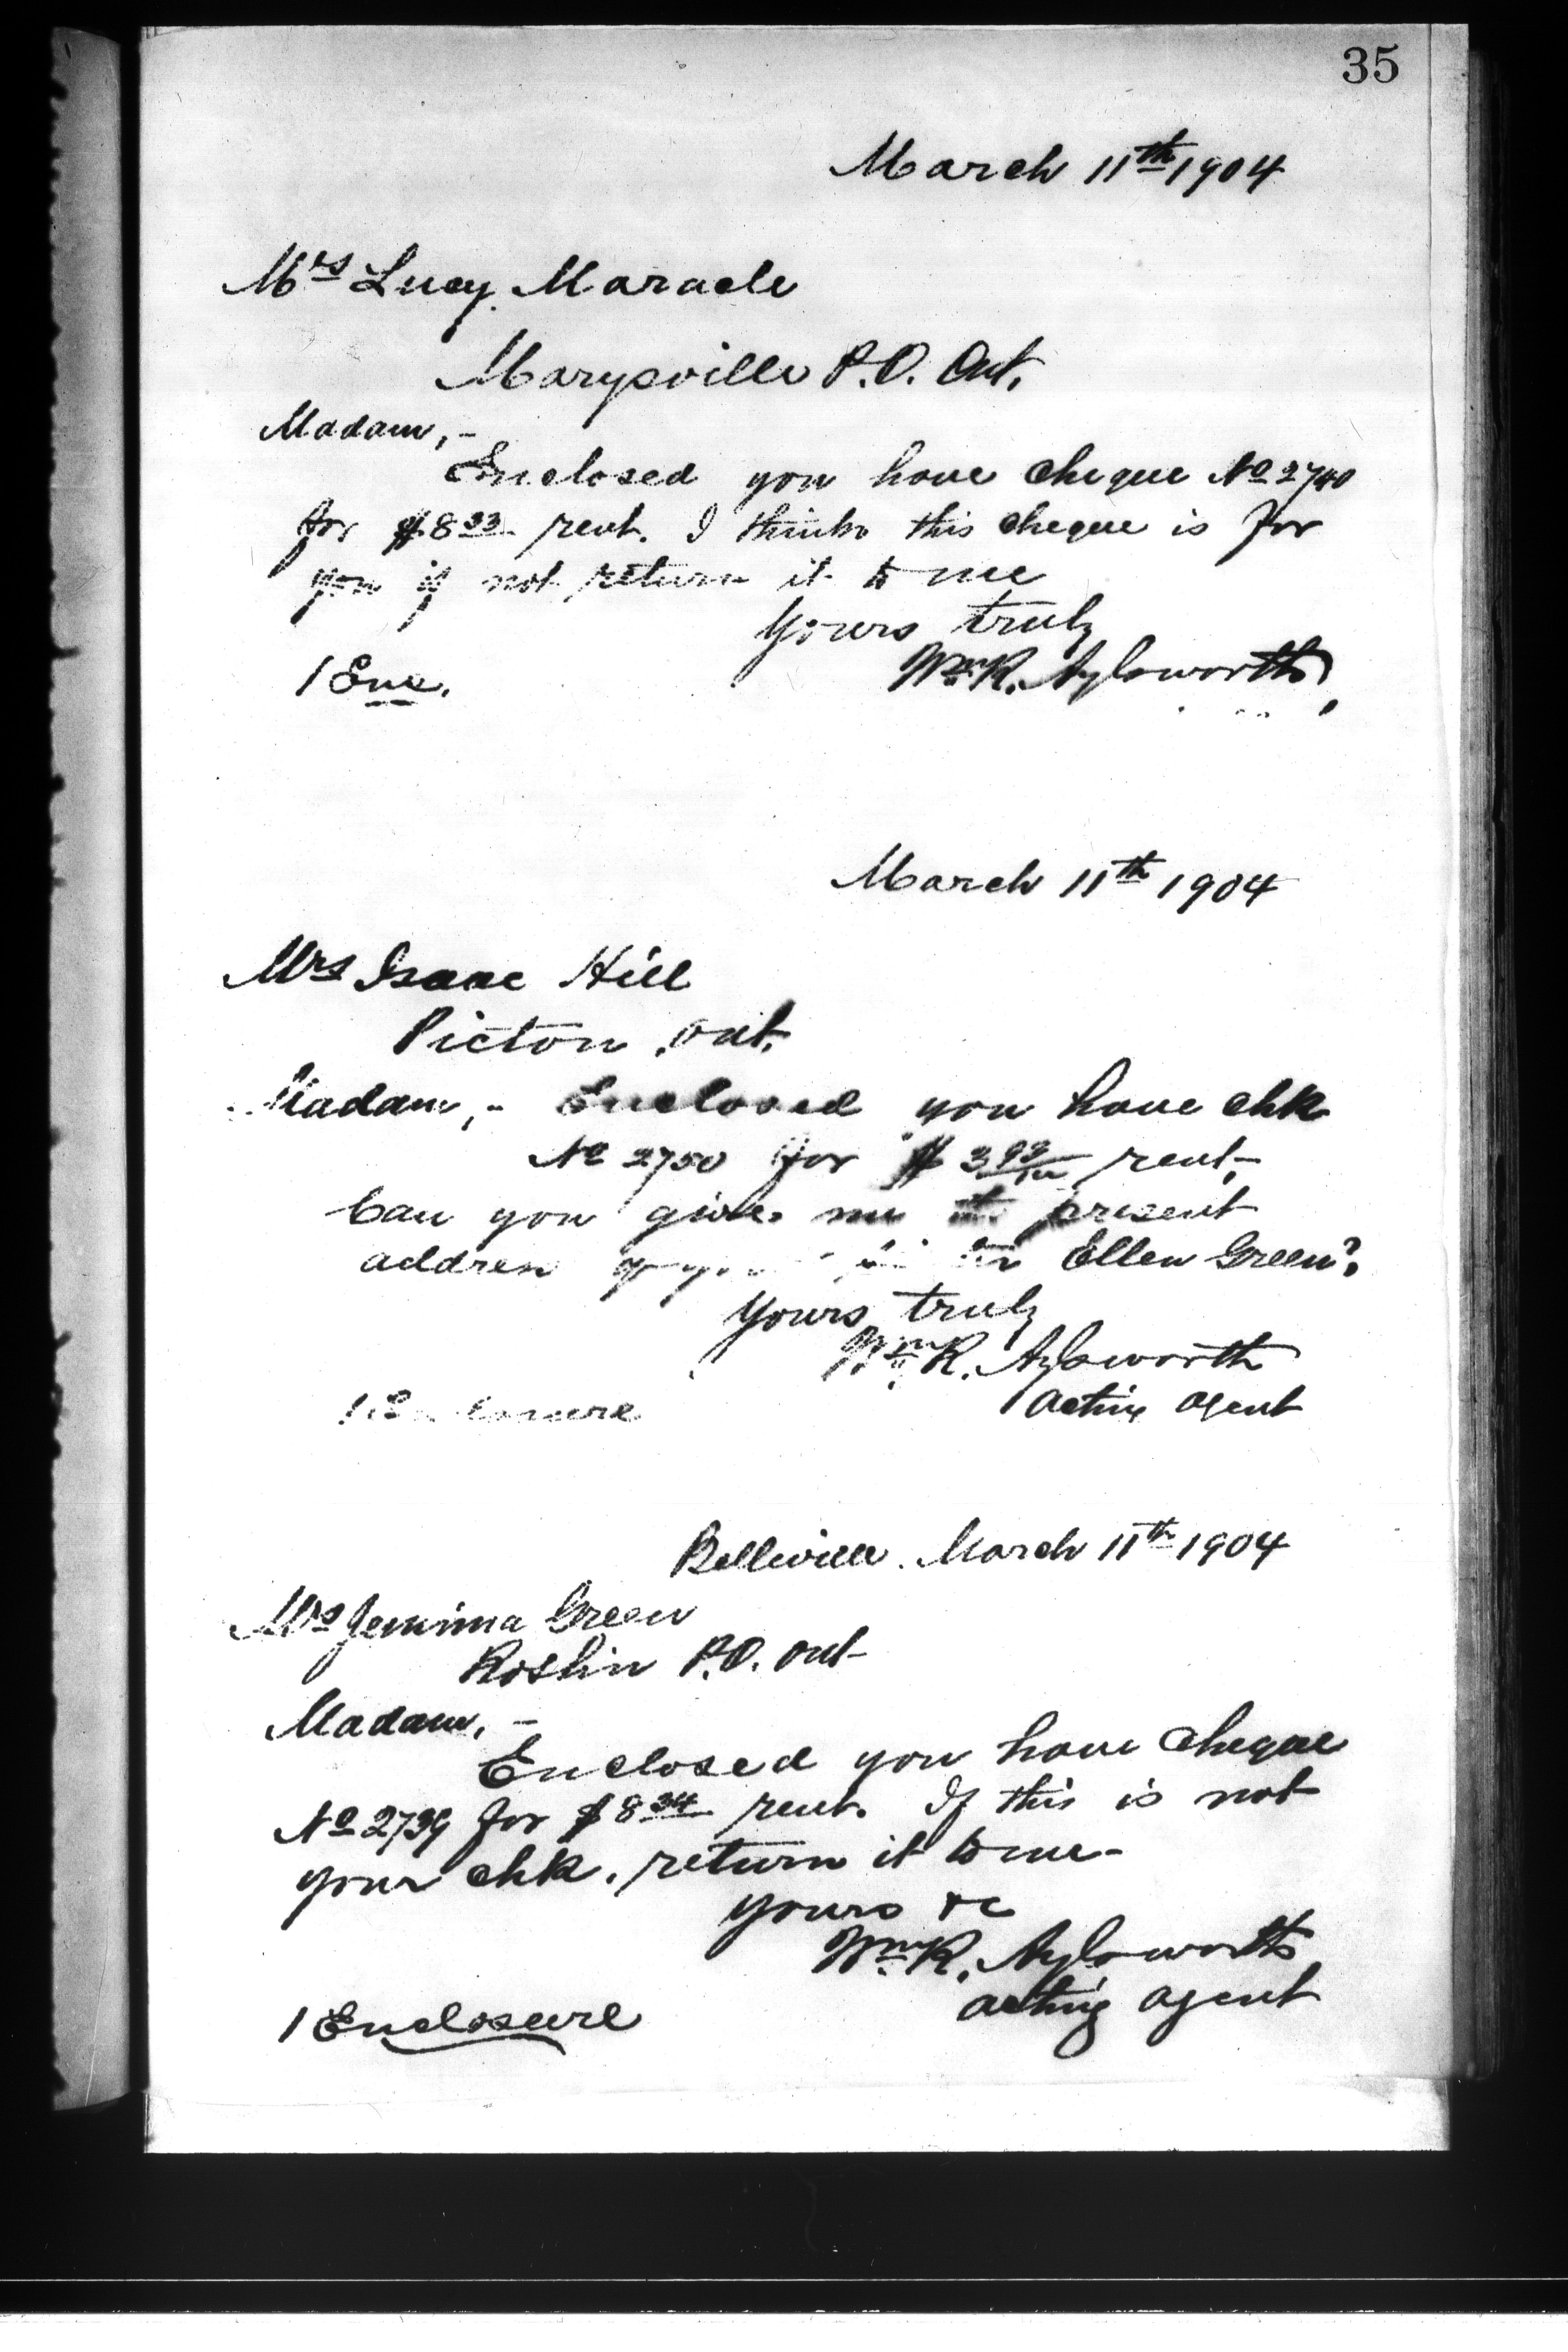 35
March 11th 1904
Mrs Lucy Maracle
Marysville P.O. Ont.
Madam,-
Enclosed you have cheque No 2740
for $8 33 rent. I think this cheque is for
you if not return it to me
Yours truly
Wm R. Aylsworth
1 Enc.
March 11th 1904
Mrs Isaac Hill
Picton, Ont.
Madam,- Enclosed you have chk
No 2750 for $3 93/100 rent.
Can you give me the present
address of Ellen Green?
Yours truly
Wm R. Aylsworth
Acting Agent
1 Enclosure
Belleville. March 11th 1904
Mrs Jemima Green
Roslin P.O. Ont
Madam,-
Enclosed you have cheque
No 2739 for $8 34 rent. If this is not
your chk. return it to me-
Yours &c
Wm R. Aylsworth
Acting Agent
1 Enclosure